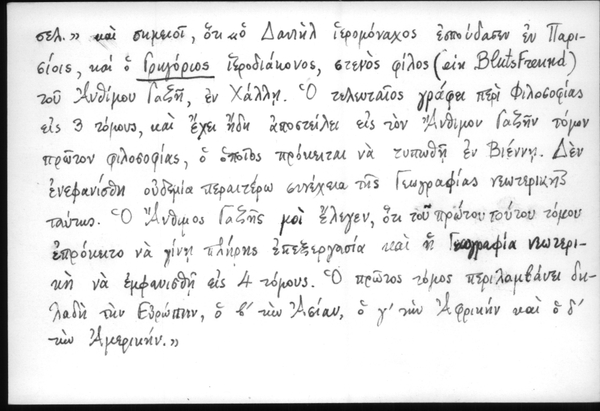 σελ.» καὶ σημειοῖ, ὅτι «ὁ Δανιὴλ ἱερομόναχος ἐσπούδασεν ἐν Παρι-
σίοις, καὶ ὁ Γρηγόριος ἱεροδιάκονος, στενὸς φίλος (ein BlutsFreund)
τοῦ Ἀνθίμου Γαζῆ, ἐν Χάλλῃ. Ὁ τελευταῖος γράφει περὶ Φιλοσοφίας
εἰς 3 τόμους, καὶ ἔχει ἤδη ἀποστείλει εἰς τὸν Ἄνθιμον Γαζῆν τόμον
πρῶτον φιλοσοφίας, ὁ ὁποῖος πρόκειται νὰ τυπωθῇ ἐν Βιέννῃ. Δὲν
ἐνεφανίσθη οὐδεμία περαιτέρω συνέχεια τῆς Γεωγραφίας νεωτερικῆς
ταύτης. Ὁ Ἄνθιμος Γαζῆς μοὶ ἔλεγεν, ὅτι τοῦ πρώτου τούτου τόμου
ἐπρόκειτο νὰ γίνῃ πλήρης ἐπεξεργασία καὶ ἡ Γεωγραφία νεωτερι-
κὴ νὰ ἐμφανισθῇ εἰς 4 τόμους. Ὁ πρῶτος τόμος περιλαμβάνει δη-
λαδὴ τὴν Εὐρώπην, ὁ β΄ τὴν Ἀσίαν, ὁ γ΄ τὴν Ἀφρικὴν καὶ ὁ δ΄
τὴν Ἀμερικήν.»